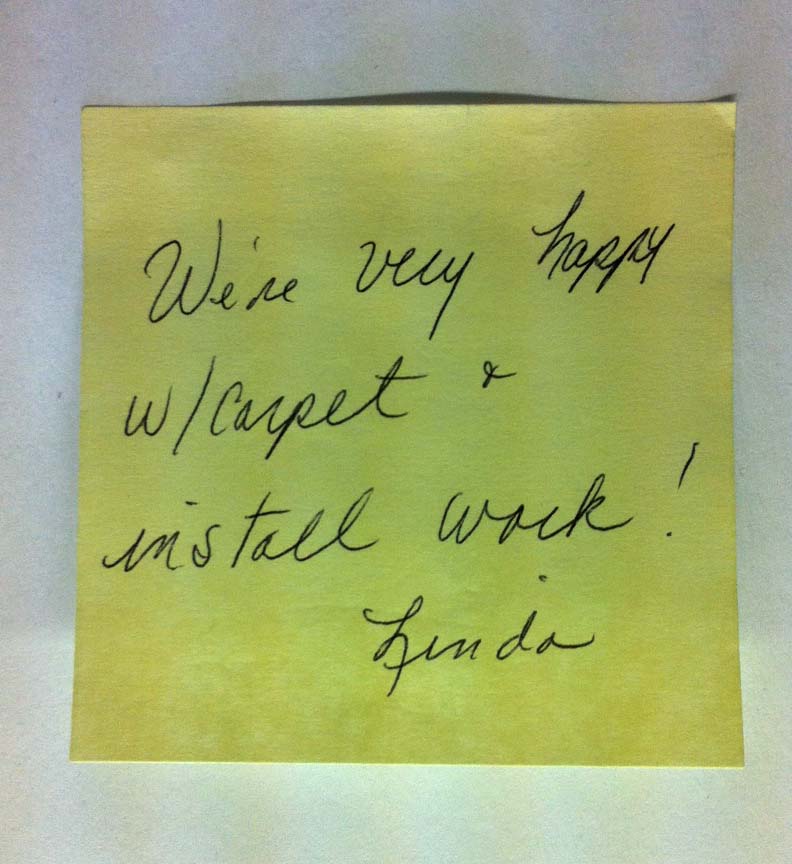 We're very happy
w/carpet &
install work!
Linda